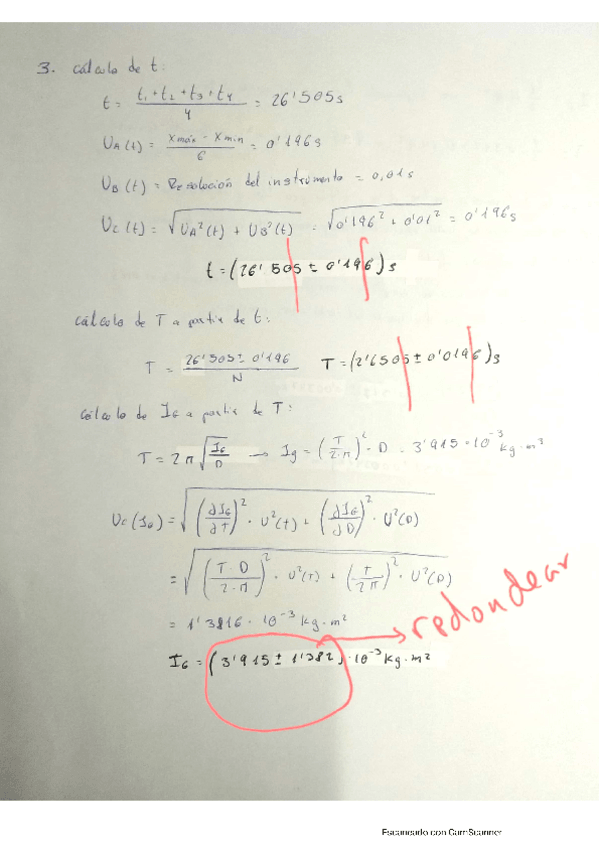 3. cálculo de t:
t = (t₁ + t₂ + t₃ + t₄) / 4 = 26'505 s
U_A (t) = (xmáx - xmin) / 6 = 0'196 s
U_B (t) = Resolución del instrumento = 0,01 s
U_C (t) = √(U_A²(t) + U_B²(t)) = √(0'196² + 0'01²) = 0'196 s
t = (26'505 ± 0'196) s
cálculo de T a partir de t:
T = (26'505 ± 0'196) / N   T = (2'6505 ± 0'0196) s
cálculo de I_G a partir de T:
T = 2π √(I_G / D) → I_g = (T / 2·π)² · D = 3'915 · 10⁻³ kg·m²
U_C (I_G) = √((∂I_G / ∂T)² · U²(t) + (∂I_G / ∂D)² · U²(D))
= √((T·D / 2·π)² · U²(T) + (T / 2π)² · U²(D))
= 1'3816 · 10⁻³ kg·m²
redondear
I_G = (3'915 ± 1'382) · 10⁻³ kg·m²
Escaneado con CamScanner